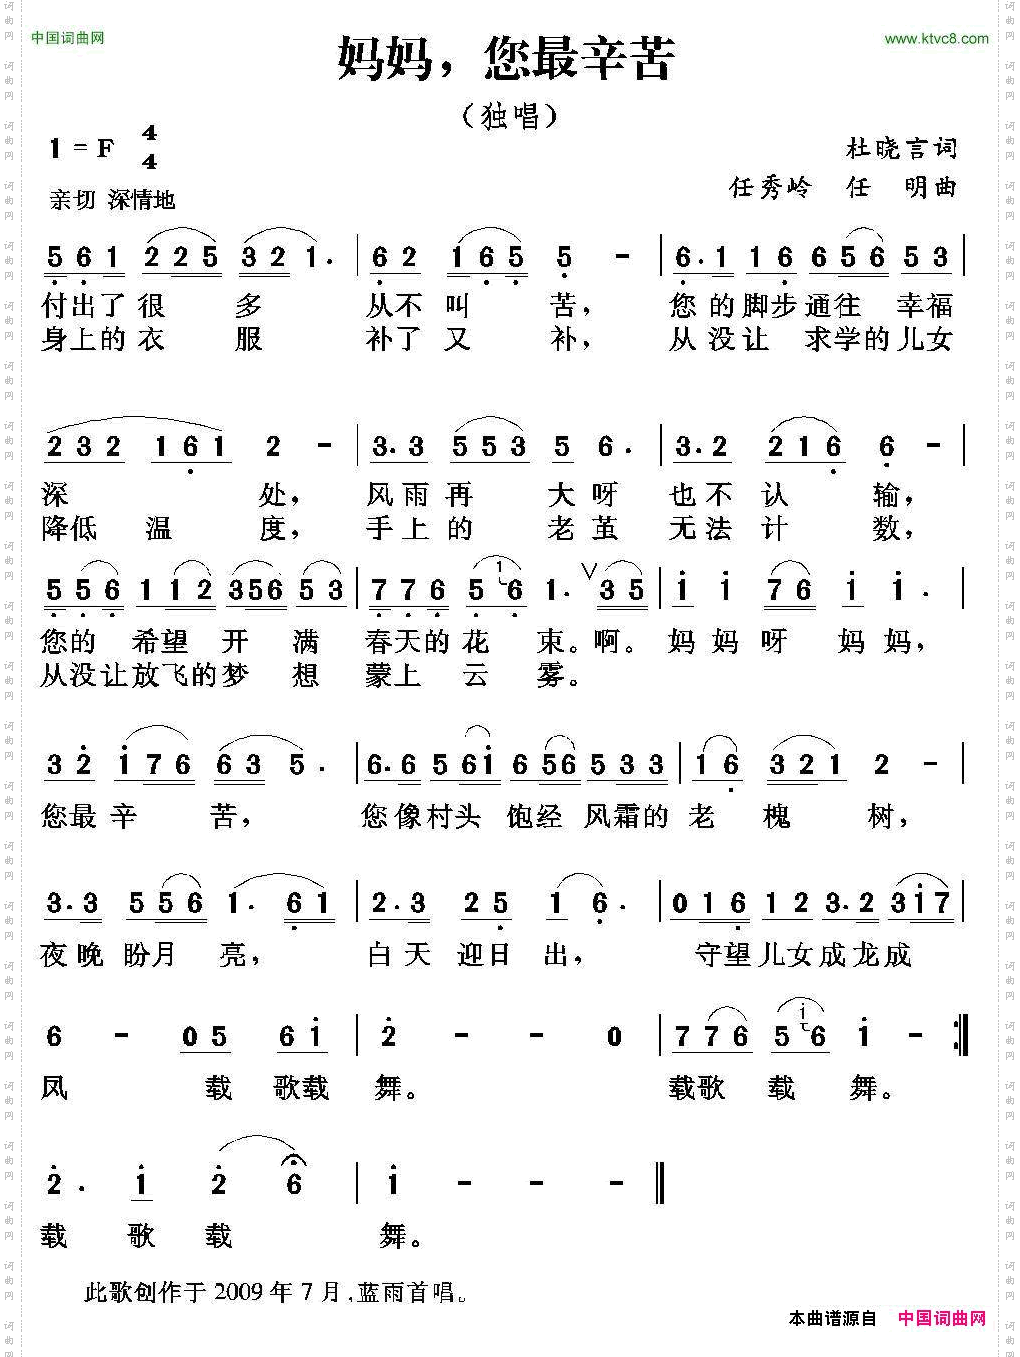 中国词曲网
www.ktvc8.com
妈妈，您最辛苦
（独唱）
1 = F 4/4
杜晓言词
亲切 深情地
任秀岭 任 明曲
5 6 1 2 2 5 3 2 1. | 6 2 1 6 5 5 - | 6. 1 1 6 6 5 6 5 3 |
付出了很 多 从不叫 苦， 您的脚步通往 幸福
身上的衣 服 补了又 补， 从没让 求学的儿女
2 3 2 1 6 1 2 - | 3. 3 5 5 3 5 6. | 3. 2 2 1 6 6 - |
深 处， 风雨再 大呀 也不认 输，
降低 温 度， 手上的 老茧 无法计 数，
5 5 6 1 1 2 3 5 6 5 3 | 7 7 6 5 1 6 1. V 3 5 | i i 7 6 i i. |
您的 希望 开 满 春天的花 束。啊。妈妈呀 妈妈，
从没让放飞的梦 想 蒙上 云 雾。
3 2 i 7 6 6 3 5. | 6. 6 5 6 i 6 5 6 5 3 3 | 1 6 3 2 1 2 - |
您最辛 苦， 您像村头 饱经 风霜的 老 槐 树，
3. 3 5 5 6 1. 6 1 | 2. 3 2 5 1 6. | 0 1 6 1 2 3. 2 3 i 7 |
夜晚 盼月 亮， 白天 迎日 出， 守望儿女成龙成
6 - 0 5 6 i | 2 - - 0 | 7 7 6 5 i 6 i - :|
凤 载 歌载 舞。 载歌 载 舞。
2. i 2 6 | i - - - ‖
载 歌 载 舞。
此歌创作于 2009 年 7 月,蓝雨首唱。
本曲谱源自 中国词曲网